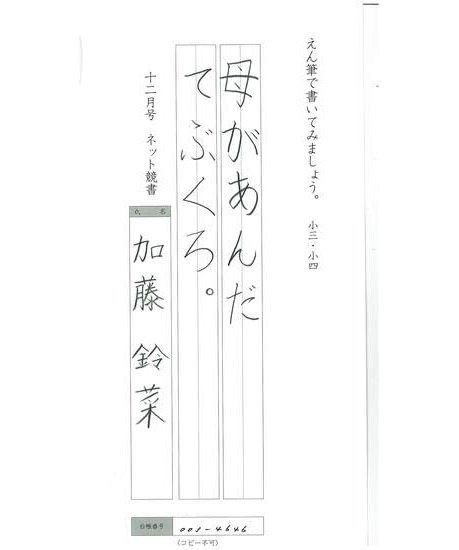 えん筆で書いてみましょう。 小三・小四
母があんだ
てぶくろ。
十二月号 ネット競書
氏名
加藤 鈴菜
会員番号 005-4646
(コピー不可)